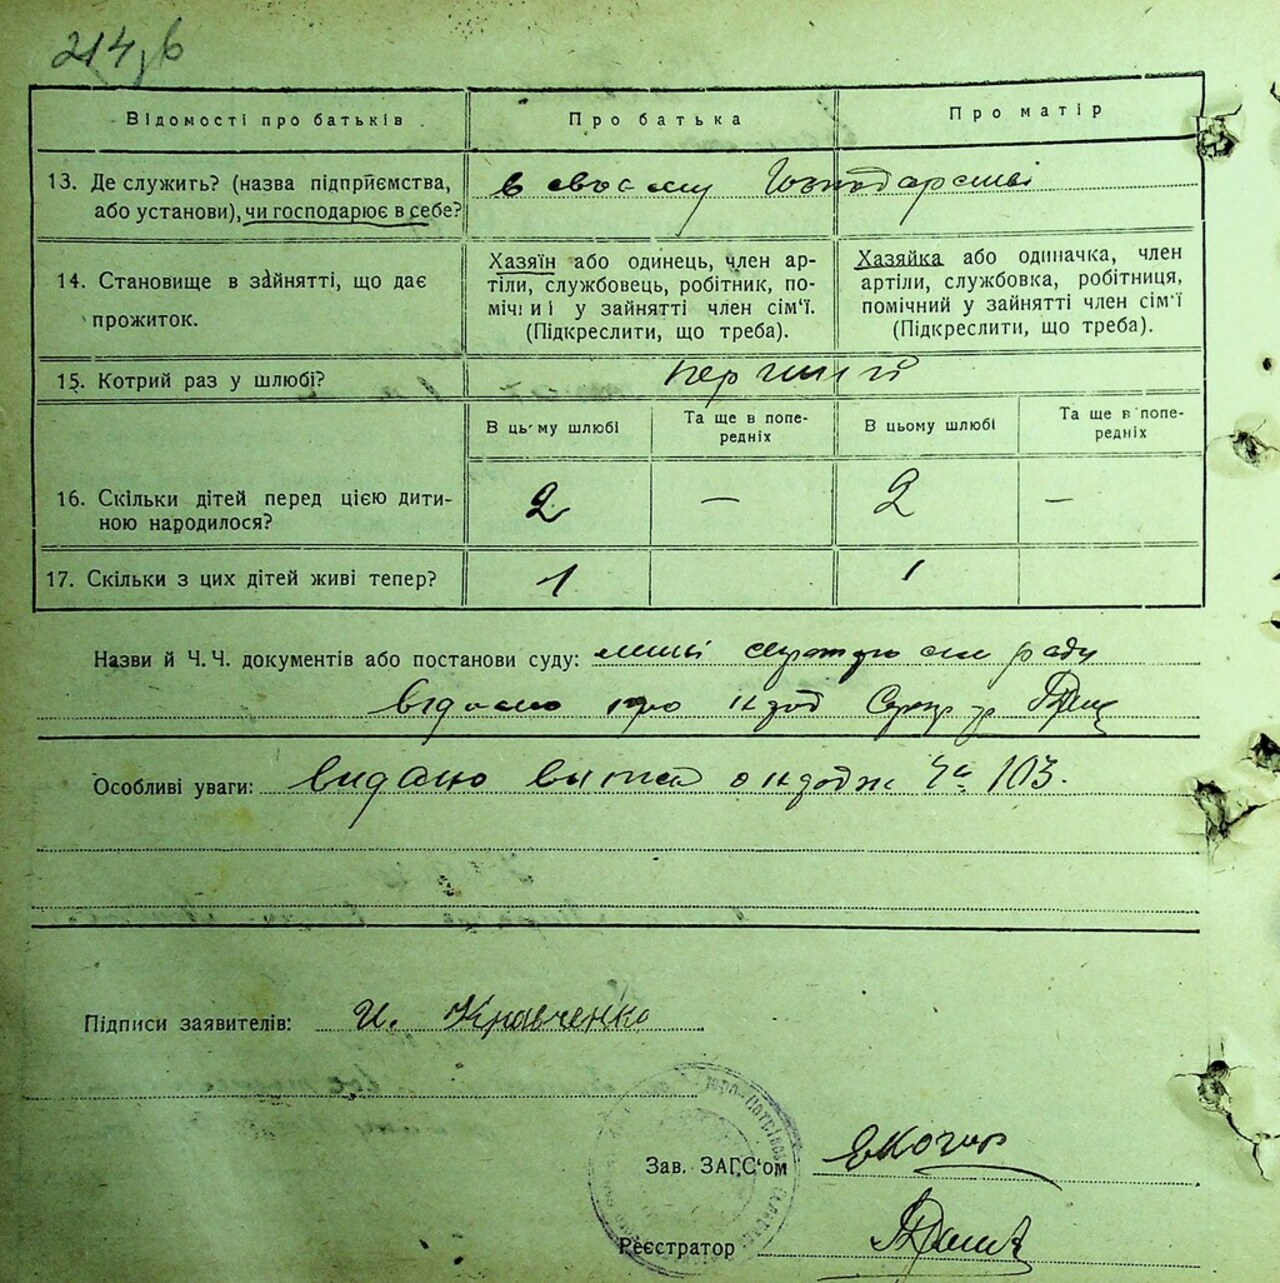 214
Відомості про батьків
Про батька
Про матір
13. Де служить? (назва підприємства,
або установи), чи господарює в себе?
в своєму господарстві
14. Становище в зайнятті, що дає
прожиток.
Хазяїн або одинець, член ар-
тілі, службовець, робітник, по-
мічний у зайнятті член сім'ї.
(Підкреслити, що треба).
Хазяйка або одиначка, член
артілі, службовка, робітниця,
помічний у зайнятті член сім'ї
(Підкреслити, що треба).
15. Котрий раз у шлюбі?
перший
В цьому шлюбі
Та ще в попе-
редніх
В цьому шлюбі
Та ще в попе-
редніх
16. Скільки дітей перед цією дити-
ною народилося?
2 — 2 —
17. Скільки з цих дітей живі тепер?
1 1
Назви й Ч. Ч. документів або постанови суду:
раду
про
Особливі уваги: видано 103.
Підписи заявителів: И. Кравченко
Зав. ЗАГС'ом
Реєстратор